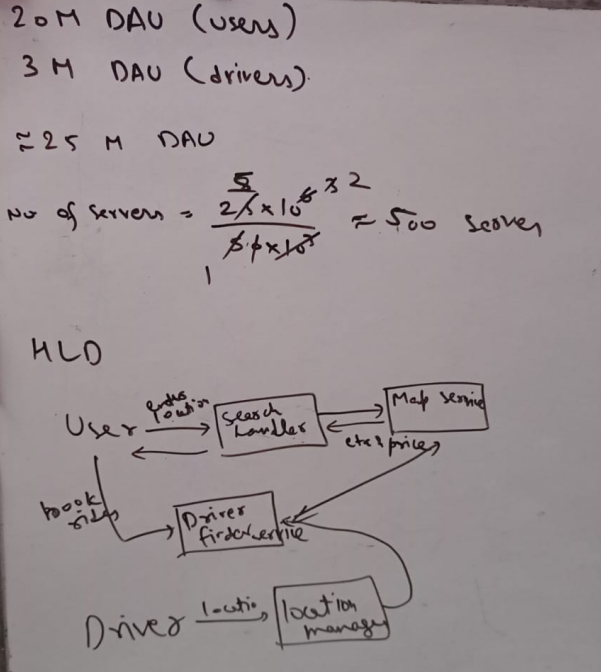 20M DAU (users)
3 M DAU (drivers).
≈25 M DAU
No of servers = 5 25×10⁶ × 2 ≈ 500 server
1
HLD
User
location
Search
handler
Map service
eta & price
book
ride
Driver
finder service
Driver
locatio
location
manager